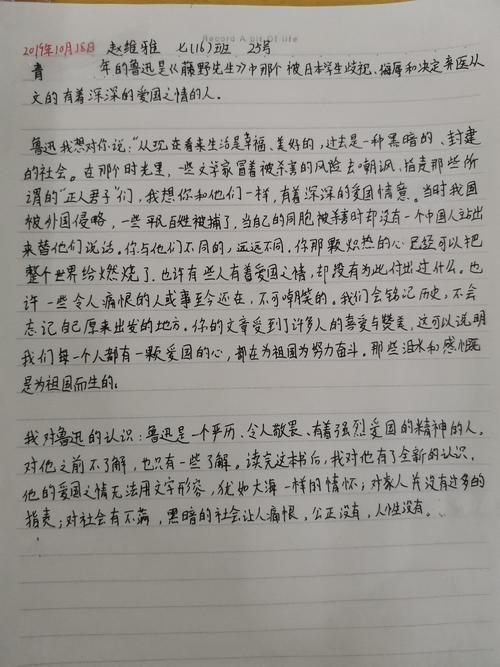 Record A bit Of life
2019年10月18日 赵维雅 七(16)班 25号
青 年的鲁迅是《藤野先生》中那个被日本学生歧视、侮辱和决定弃医从
文的有着深深的爱国之情的人。
鲁迅我想对你说:"从现在看来生活是幸福、美好的,过去是一种黑暗的、封建
的社会。在那个时光里,一些文学家冒着被杀害的风险去嘲讽、指责那些所
谓的"正人君子"们,我想你和他们一样,有着深深的爱国情意。当时我国
被外国侵略,一些平民百姓被捕了,当自己的同胞被杀害时却没有一个中国人站出
来替他们说话。你与他们不同的,远远不同。你那颗炽热的心已经可以把
整个世界给燃烧了。也许有些人有着爱国之情,却没有为此付出过什么。也
许一些令人痛恨的人或事至今还在,不可嘲笑的。我们会铭记历史,不会
忘记自己原来出发的地方。你的文章受到了许多人的喜爱与赞美,这可以说明
我们每一个人都有一颗爱国的心,都在为祖国为努力奋斗。那些泪水和感慨
是为祖国而生的。
我对鲁迅的认识:鲁迅是一个严厉、令人敬畏、有着强烈爱国的精神的人。
对他之前不了解,也只有一些了解。读完这本书后,我对他有了全新的认识,
他的爱国之情无法用文字形容,犹如大海一样的情怀;对家人并没有过多的
指责;对社会有不满,黑暗的社会让人痛恨,公正没有,人性没有。